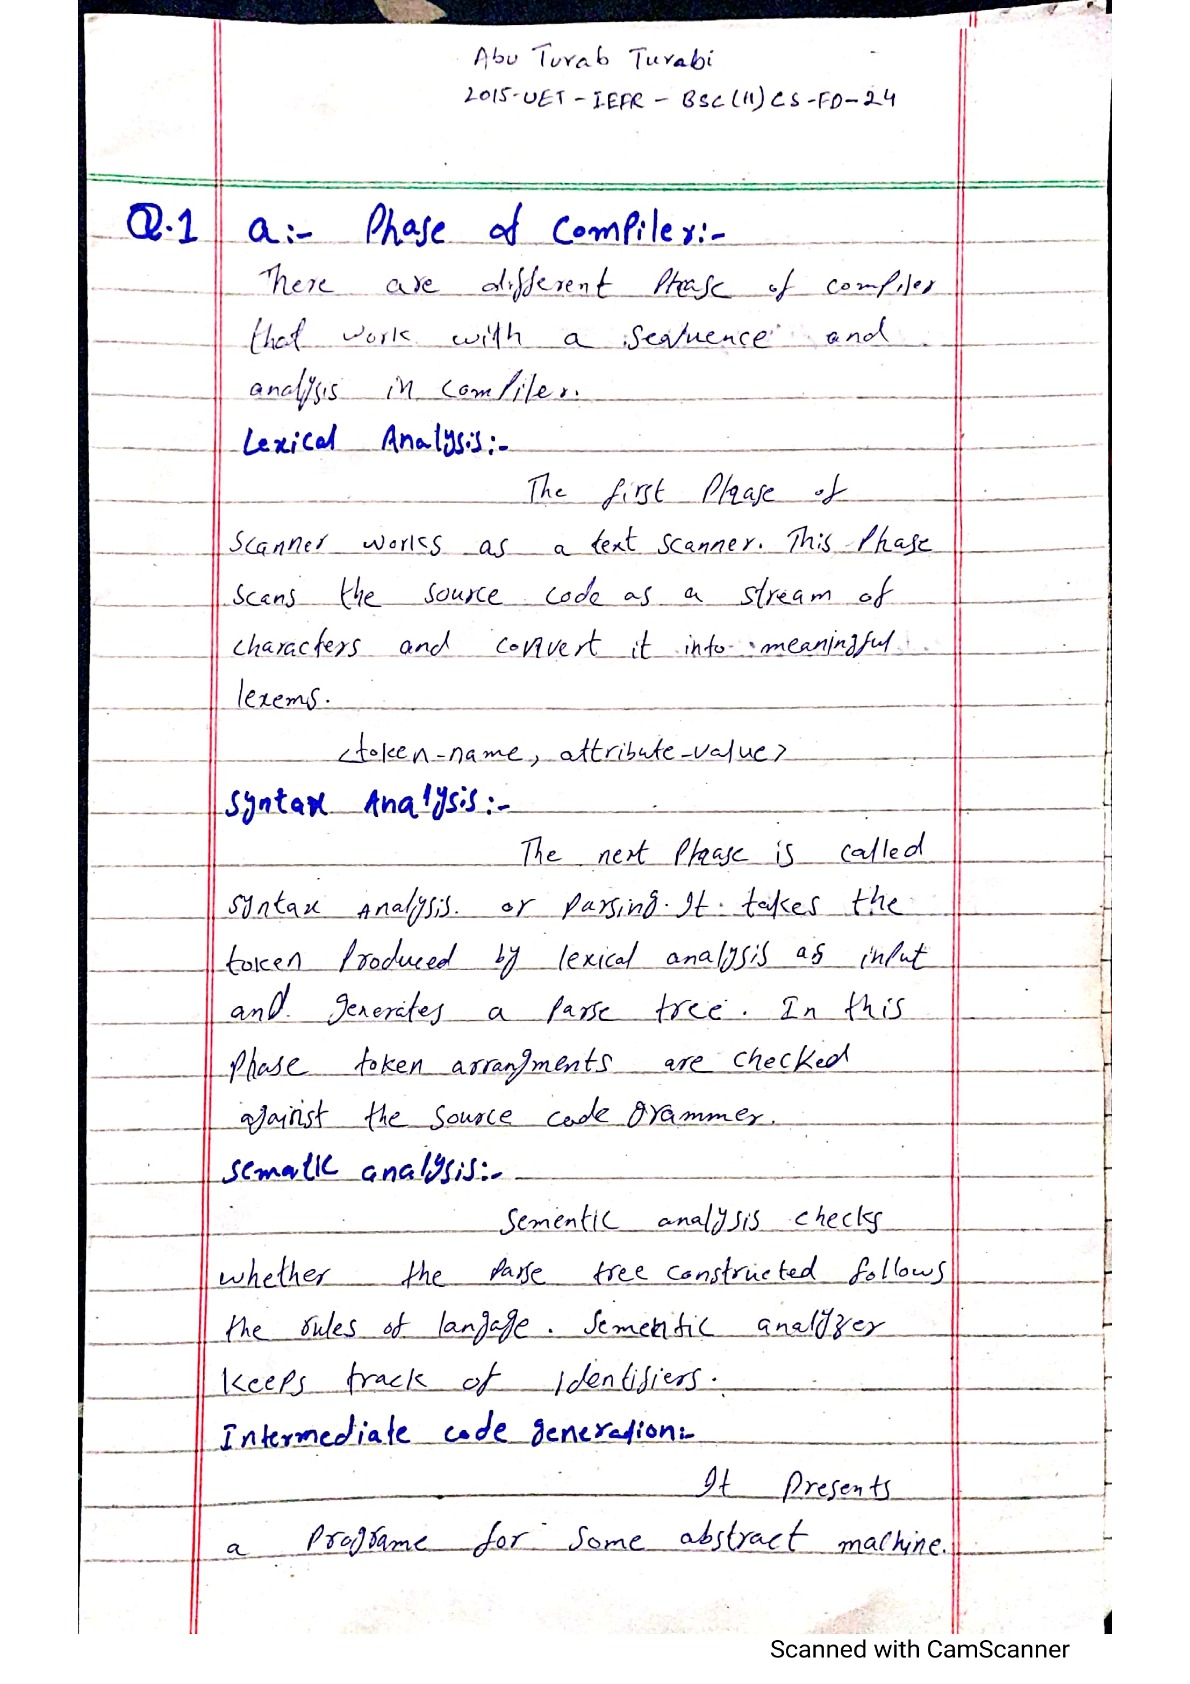 Abu Turab Turabi
2015-UET-IEFR-BSC(11)CS-FD-24
Q.1 a:- Phase of Compiler:-
There are different Phase of compiler
that work with a seauence and
analysis in compiler.
Lexical Analysis:-
The first Phase of
scanner works as a text scanner. This Phase
scans the source code as a stream of
characters and convert it into meaningful
lexems.
<token-name, attribute-value>
Syntax Analysis:-
The next Phase is called
syntax Analysis. or parsing. It takes the
token produced by lexical analysis as input
and generates a parse tree. In this
phase token arrangments are checked
against the source code grammer.
Sematic analysis:-
Sementic analysis checks
whether the parse tree constructed follows
the rules of langage. Sementic analyzer
keeps track of Identifiers.
Intermediate code generation:-
It presents
a programe for some abstract machine.
Scanned with CamScanner